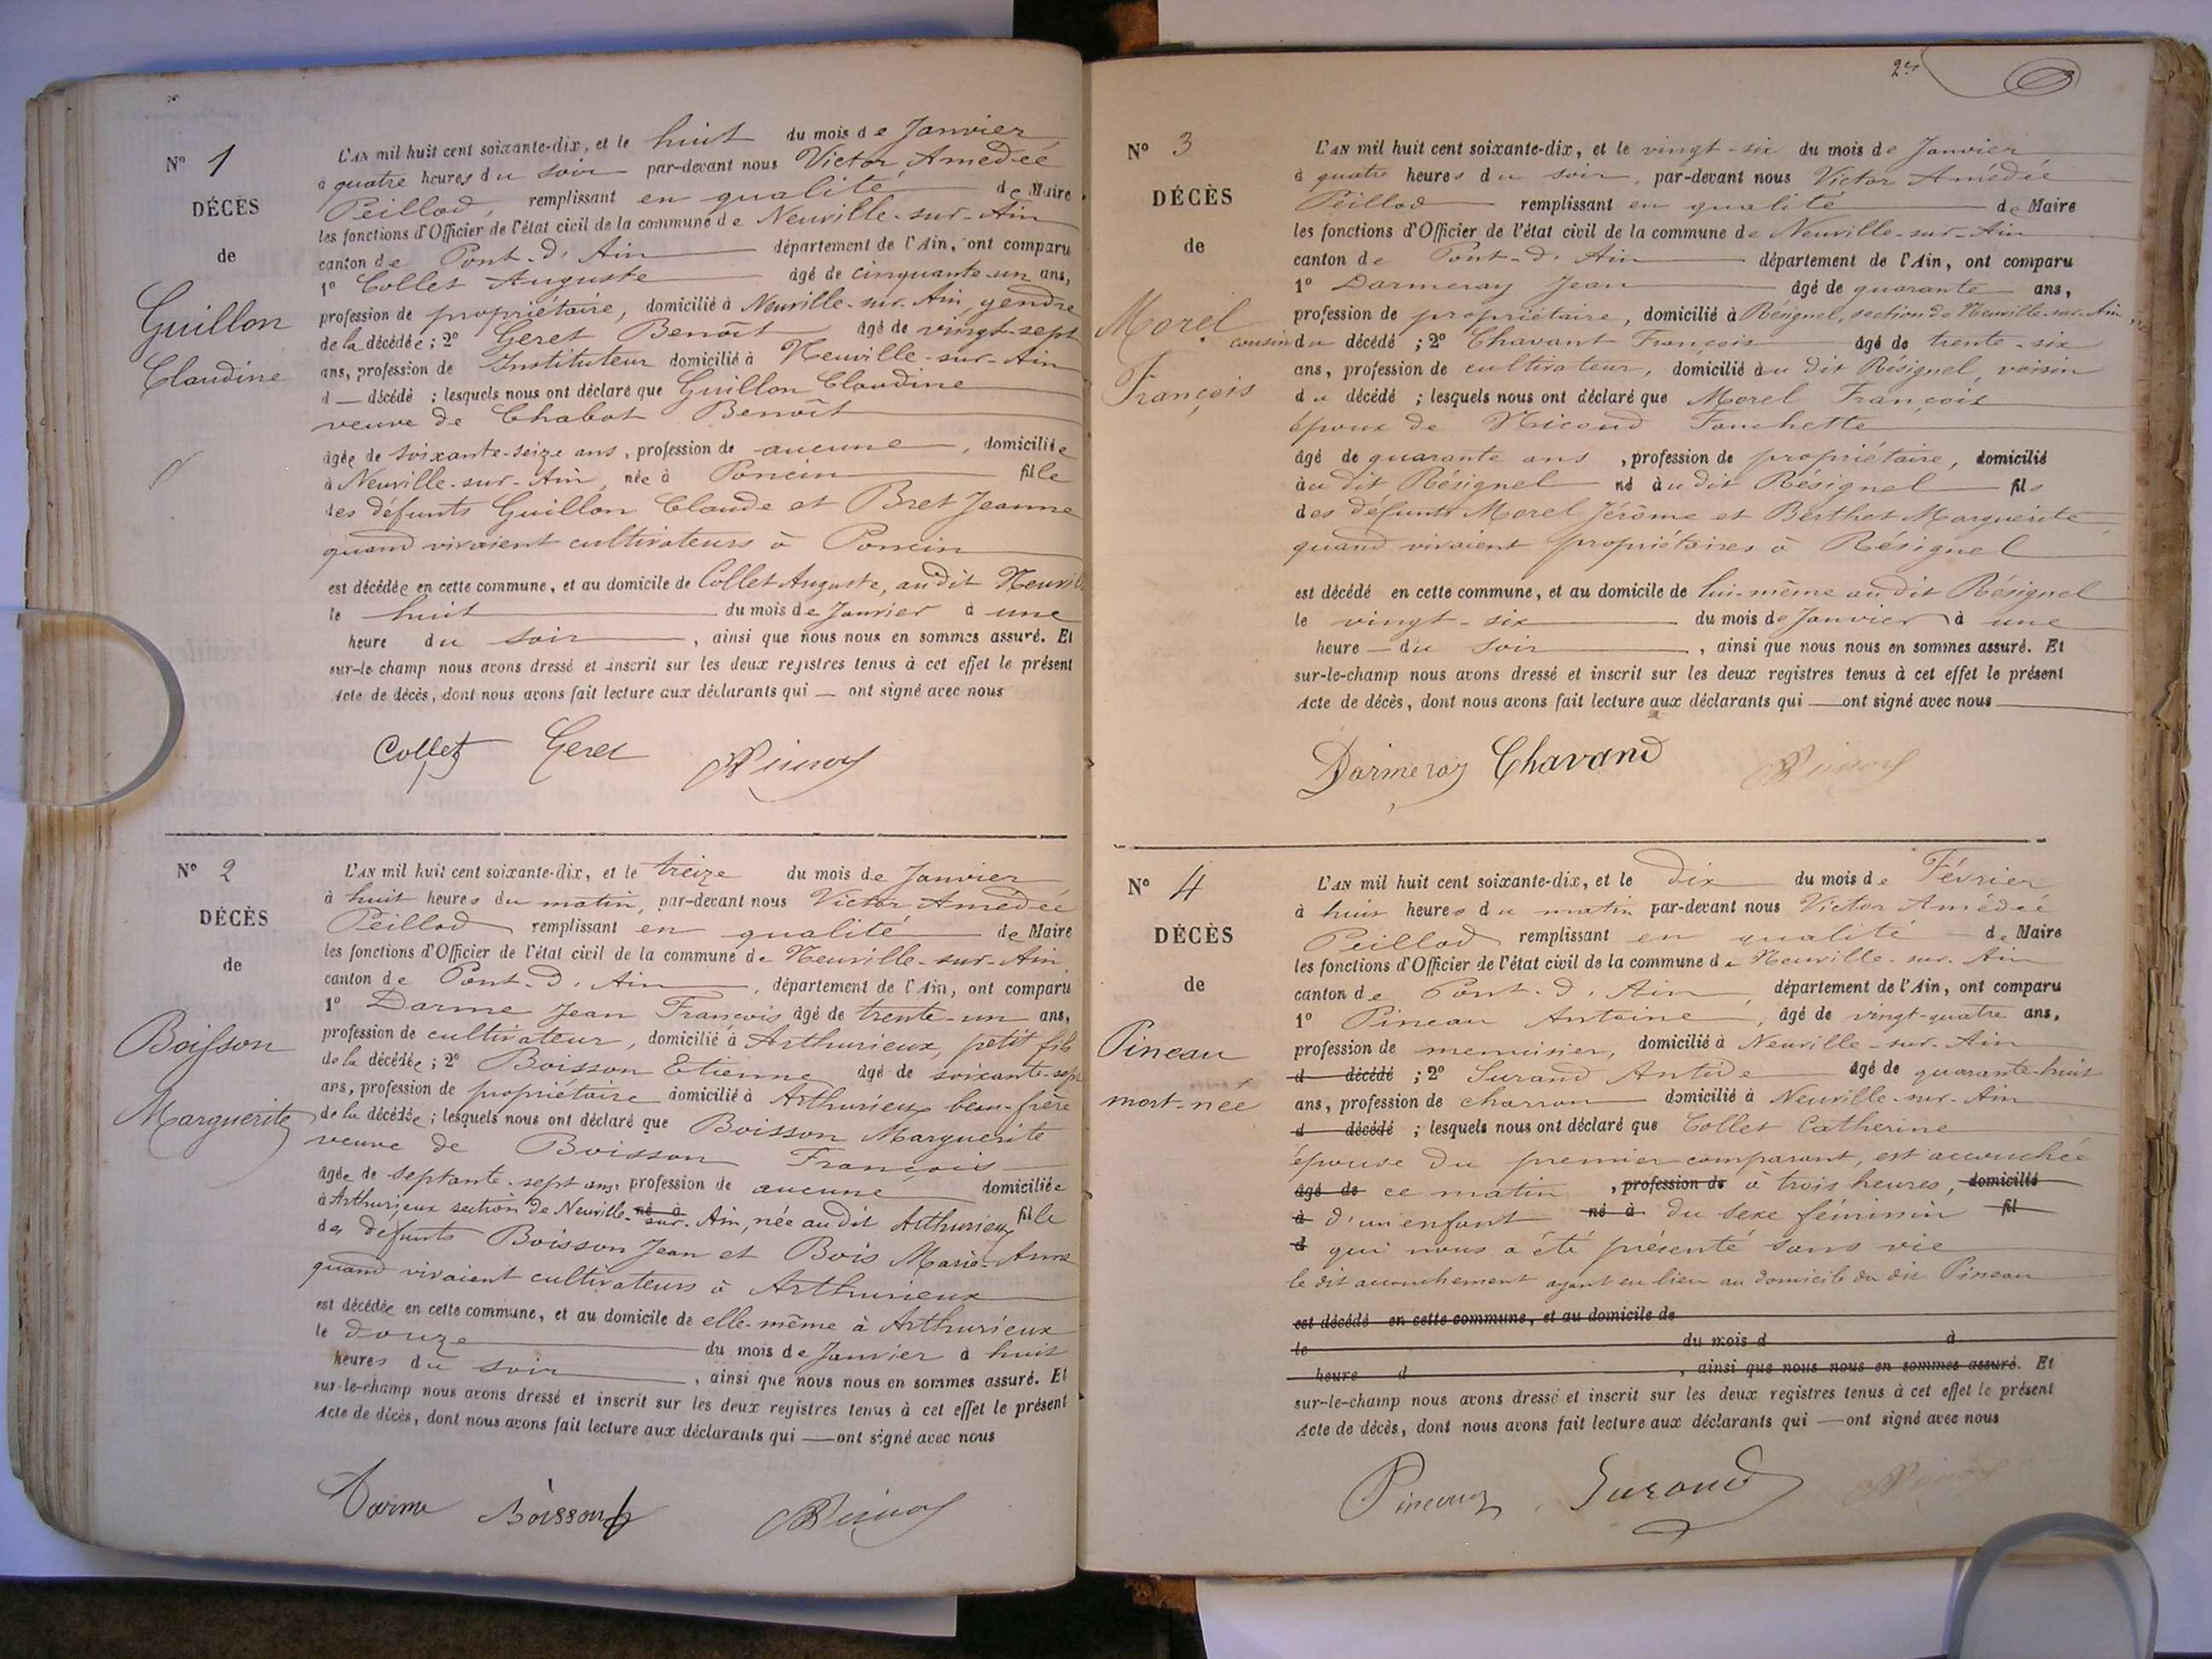 N° 1
DÉCÈS
de
Guillon
Claudine
L'AN mil huit cent soixante-dix, et le huit du mois de Janvier
à quatre heures du soir par-devant nous Victor Amédée
Peillod, remplissant en qualité de Maire
les fonctions d'Officier de l'état civil de la commune de Neuville-sur-Ain
canton de Pont-d'Ain département de l'Ain, ont comparu
1° Collet Auguste âgé de cinquante-un ans,
profession de propriétaire, domicilié à Neuville-sur-Ain, gendre
de la décédée ; 2° Geret Benoît âgé de vingt-sept
ans, profession de Instituteur domicilié à Neuville-sur-Ain
d — décédé ; lesquels nous ont déclaré que Guillon Claudine
veuve de Chabot Benoît
âgée de soixante-seize ans, profession de aucune, domiciliée
à Neuville-sur-Ain, née à Poncin fille
des défunts Guillon Claude et Bret Jeanne
quand vivaient cultivateurs à Poncin
est décédée en cette commune, et au domicile de Collet Auguste, audit Neuville
le huit du mois de Janvier à une
heure du soir, ainsi que nous nous en sommes assuré. Et
sur-le-champ nous avons dressé et inscrit sur les deux registres tenus à cet effet le présent
Acte de décès, dont nous avons fait lecture aux déclarants qui — ont signé avec nous
Collet Geret
N° 2
DÉCÈS
de
Boisson
Marguerite
L'AN mil huit cent soixante-dix, et le treize du mois de Janvier
à huit heures du matin, par-devant nous Victor Amédée
Peillod remplissant en qualité de Maire
les fonctions d'Officier de l'état civil de la commune de Neuville-sur-Ain
canton de Pont-d'Ain, département de l'Ain, ont comparu
1° Darme Jean François âgé de trente-un ans,
profession de cultivateur, domicilié à Arthurieux, petit fils
de la décédée ; 2° Boisson Etienne âgé de soixante-sept
ans, profession de propriétaire domicilié à Arthurieux beau-frère
de la décédée ; lesquels nous ont déclaré que Boisson Marguerite
veuve de Boisson François
âgée de septante-sept ans, profession de aucune domiciliée
à Arthurieux section de Neuville-sur-Ain, née né à audit Arthurieux fille
des défunts Boisson Jean et Bois Marie-Anne
quand vivaient cultivateurs à Arthurieux
est décédée en cette commune, et au domicile de elle-même à Arthurieux
le douze du mois de Janvier à huit
heures du soir, ainsi que nous nous en sommes assuré. Et
sur-le-champ nous avons dressé et inscrit sur les deux registres tenus à cet effet le présent
Acte de décès, dont nous avons fait lecture aux déclarants qui — ont signé avec nous
Darme Boisson
N° 3
DÉCÈS
de
Morel
François
L'AN mil huit cent soixante-dix, et le vingt-six du mois de Janvier
à quatre heures du soir, par-devant nous Victor Amédée
Peillod remplissant en qualité de Maire
les fonctions d'Officier de l'état civil de la commune de Neuville-sur-Ain
canton de Pont-d'Ain département de l'Ain, ont comparu
1° Darmeray Jean âgé de quarante ans,
profession de propriétaire, domicilié à Résignel, section de Neuville-sur-Ain
cousin du décédé ; 2° Chavant François âgé de trente-six
ans, profession de cultivateur, domicilié au dit Résignel, voisin
du décédé ; lesquels nous ont déclaré que Morel François
époux de Nicoud Fanchette
âgé de quarante ans, profession de propriétaire, domicilié
au dit Résignel né au dit Résignel fils
des défunts Morel Jérôme et Berthet Marguerite
quand vivaient propriétaires à Résignel
est décédé en cette commune, et au domicile de lui-même audit Résignel
le vingt-six du mois de Janvier à une
heure — du soir, ainsi que nous nous en sommes assuré. Et
sur-le-champ nous avons dressé et inscrit sur les deux registres tenus à cet effet le présent
Acte de décès, dont nous avons fait lecture aux déclarants qui — ont signé avec nous
Darmeray Chavand
N° 4
DÉCÈS
de
Pineau
mort-née
L'AN mil huit cent soixante-dix, et le dix du mois de Février
à huit heures du matin par-devant nous Victor Amédée
Peillod remplissant en qualité de Maire
les fonctions d'Officier de l'état civil de la commune de Neuville-sur-Ain
canton de Pont-d'Ain, département de l'Ain, ont comparu
1° Pineau Antoine, âgé de vingt-quatre ans,
profession de menuisier, domicilié à Neuville-sur-Ain
d décédé ; 2° Surand Antide âgé de quarante-huit
ans, profession de charron domicilié à Neuville-sur-Ain
d décédé ; lesquels nous ont déclaré que Collet Catherine
épouse du premier comparant, est accouchée
âgé de ce matin, profession de à trois heures, domicilié
à d'un enfant né à du sexe féminin fil
d qui nous a été présenté sans vie
le dit accouchement ayant eu lieu au domicile du dit Pineau
est décédé en cette commune, et au domicile de
le du mois d à
heure d, ainsi que nous nous en sommes assuré. Et
sur-le-champ nous avons dressé et inscrit sur les deux registres tenus à cet effet le présent
Acte de décès, dont nous avons fait lecture aux déclarants qui — ont signé avec nous
Pineau Surand